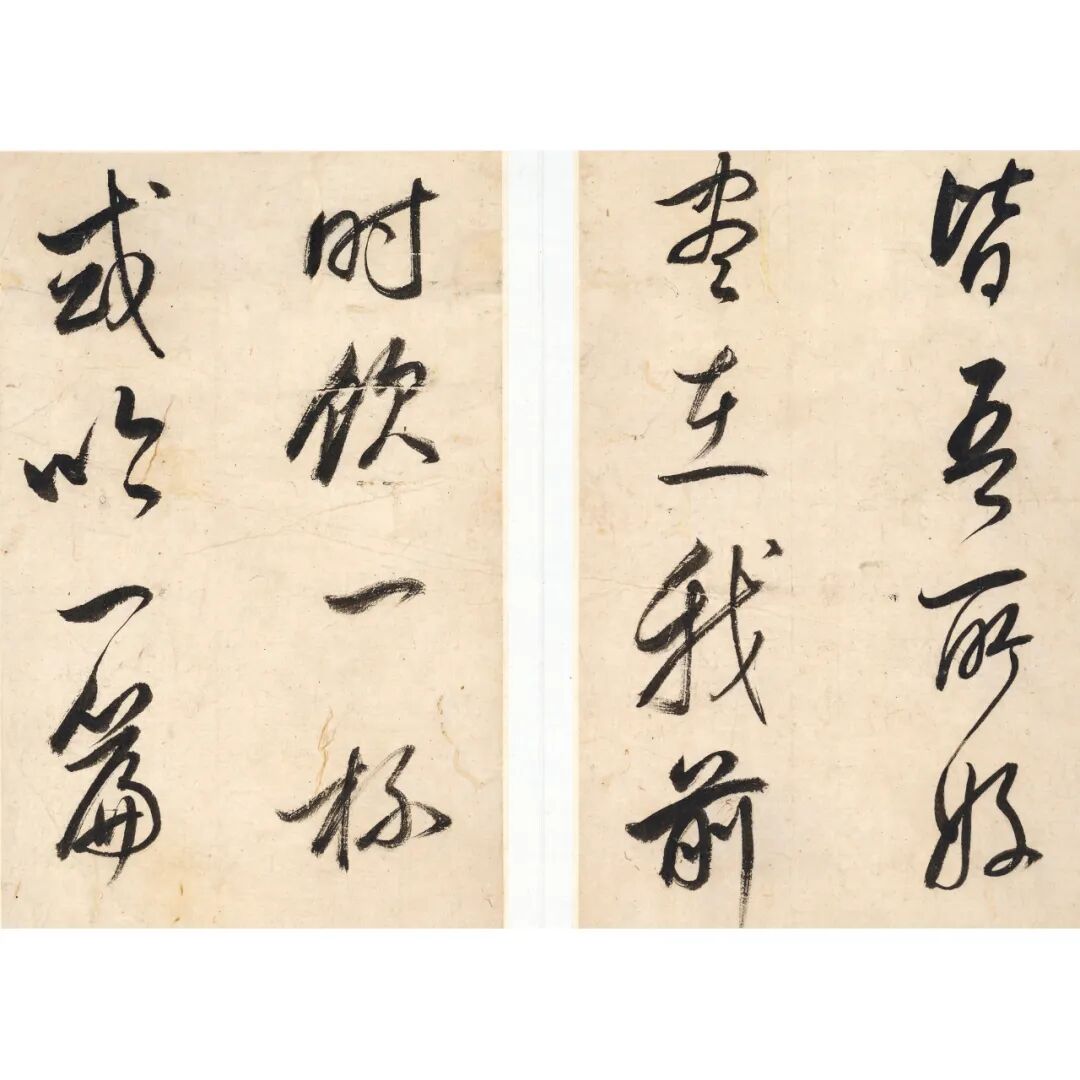 皆吾所好
尽在我前
时饮一杯
或吟一篇